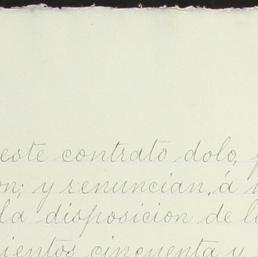 este contrato dolo,
on; y renuncian, á
la disposicion de l
ientos cincuenta y